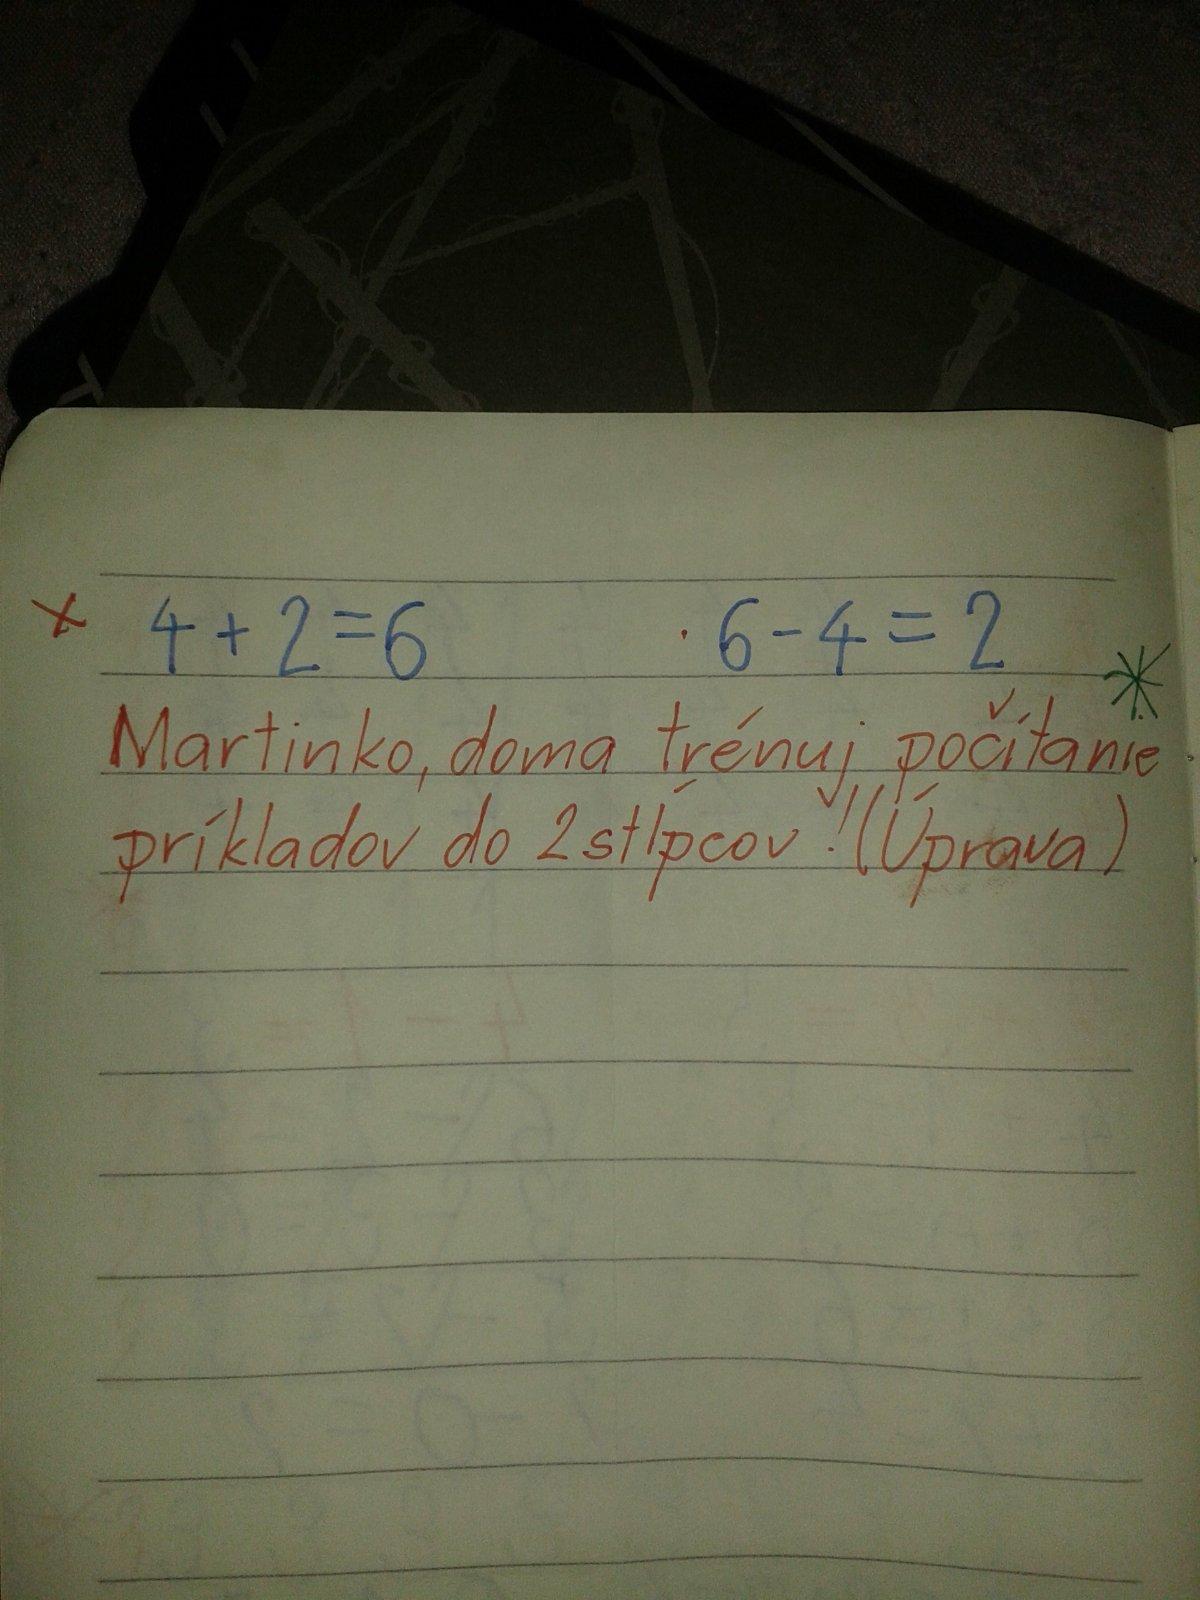 x 4 + 2 = 6 · 6 - 4 = 2
Martinko, doma trénuj počítanie
príkladov do 2 stĺpcov! (Úprava)